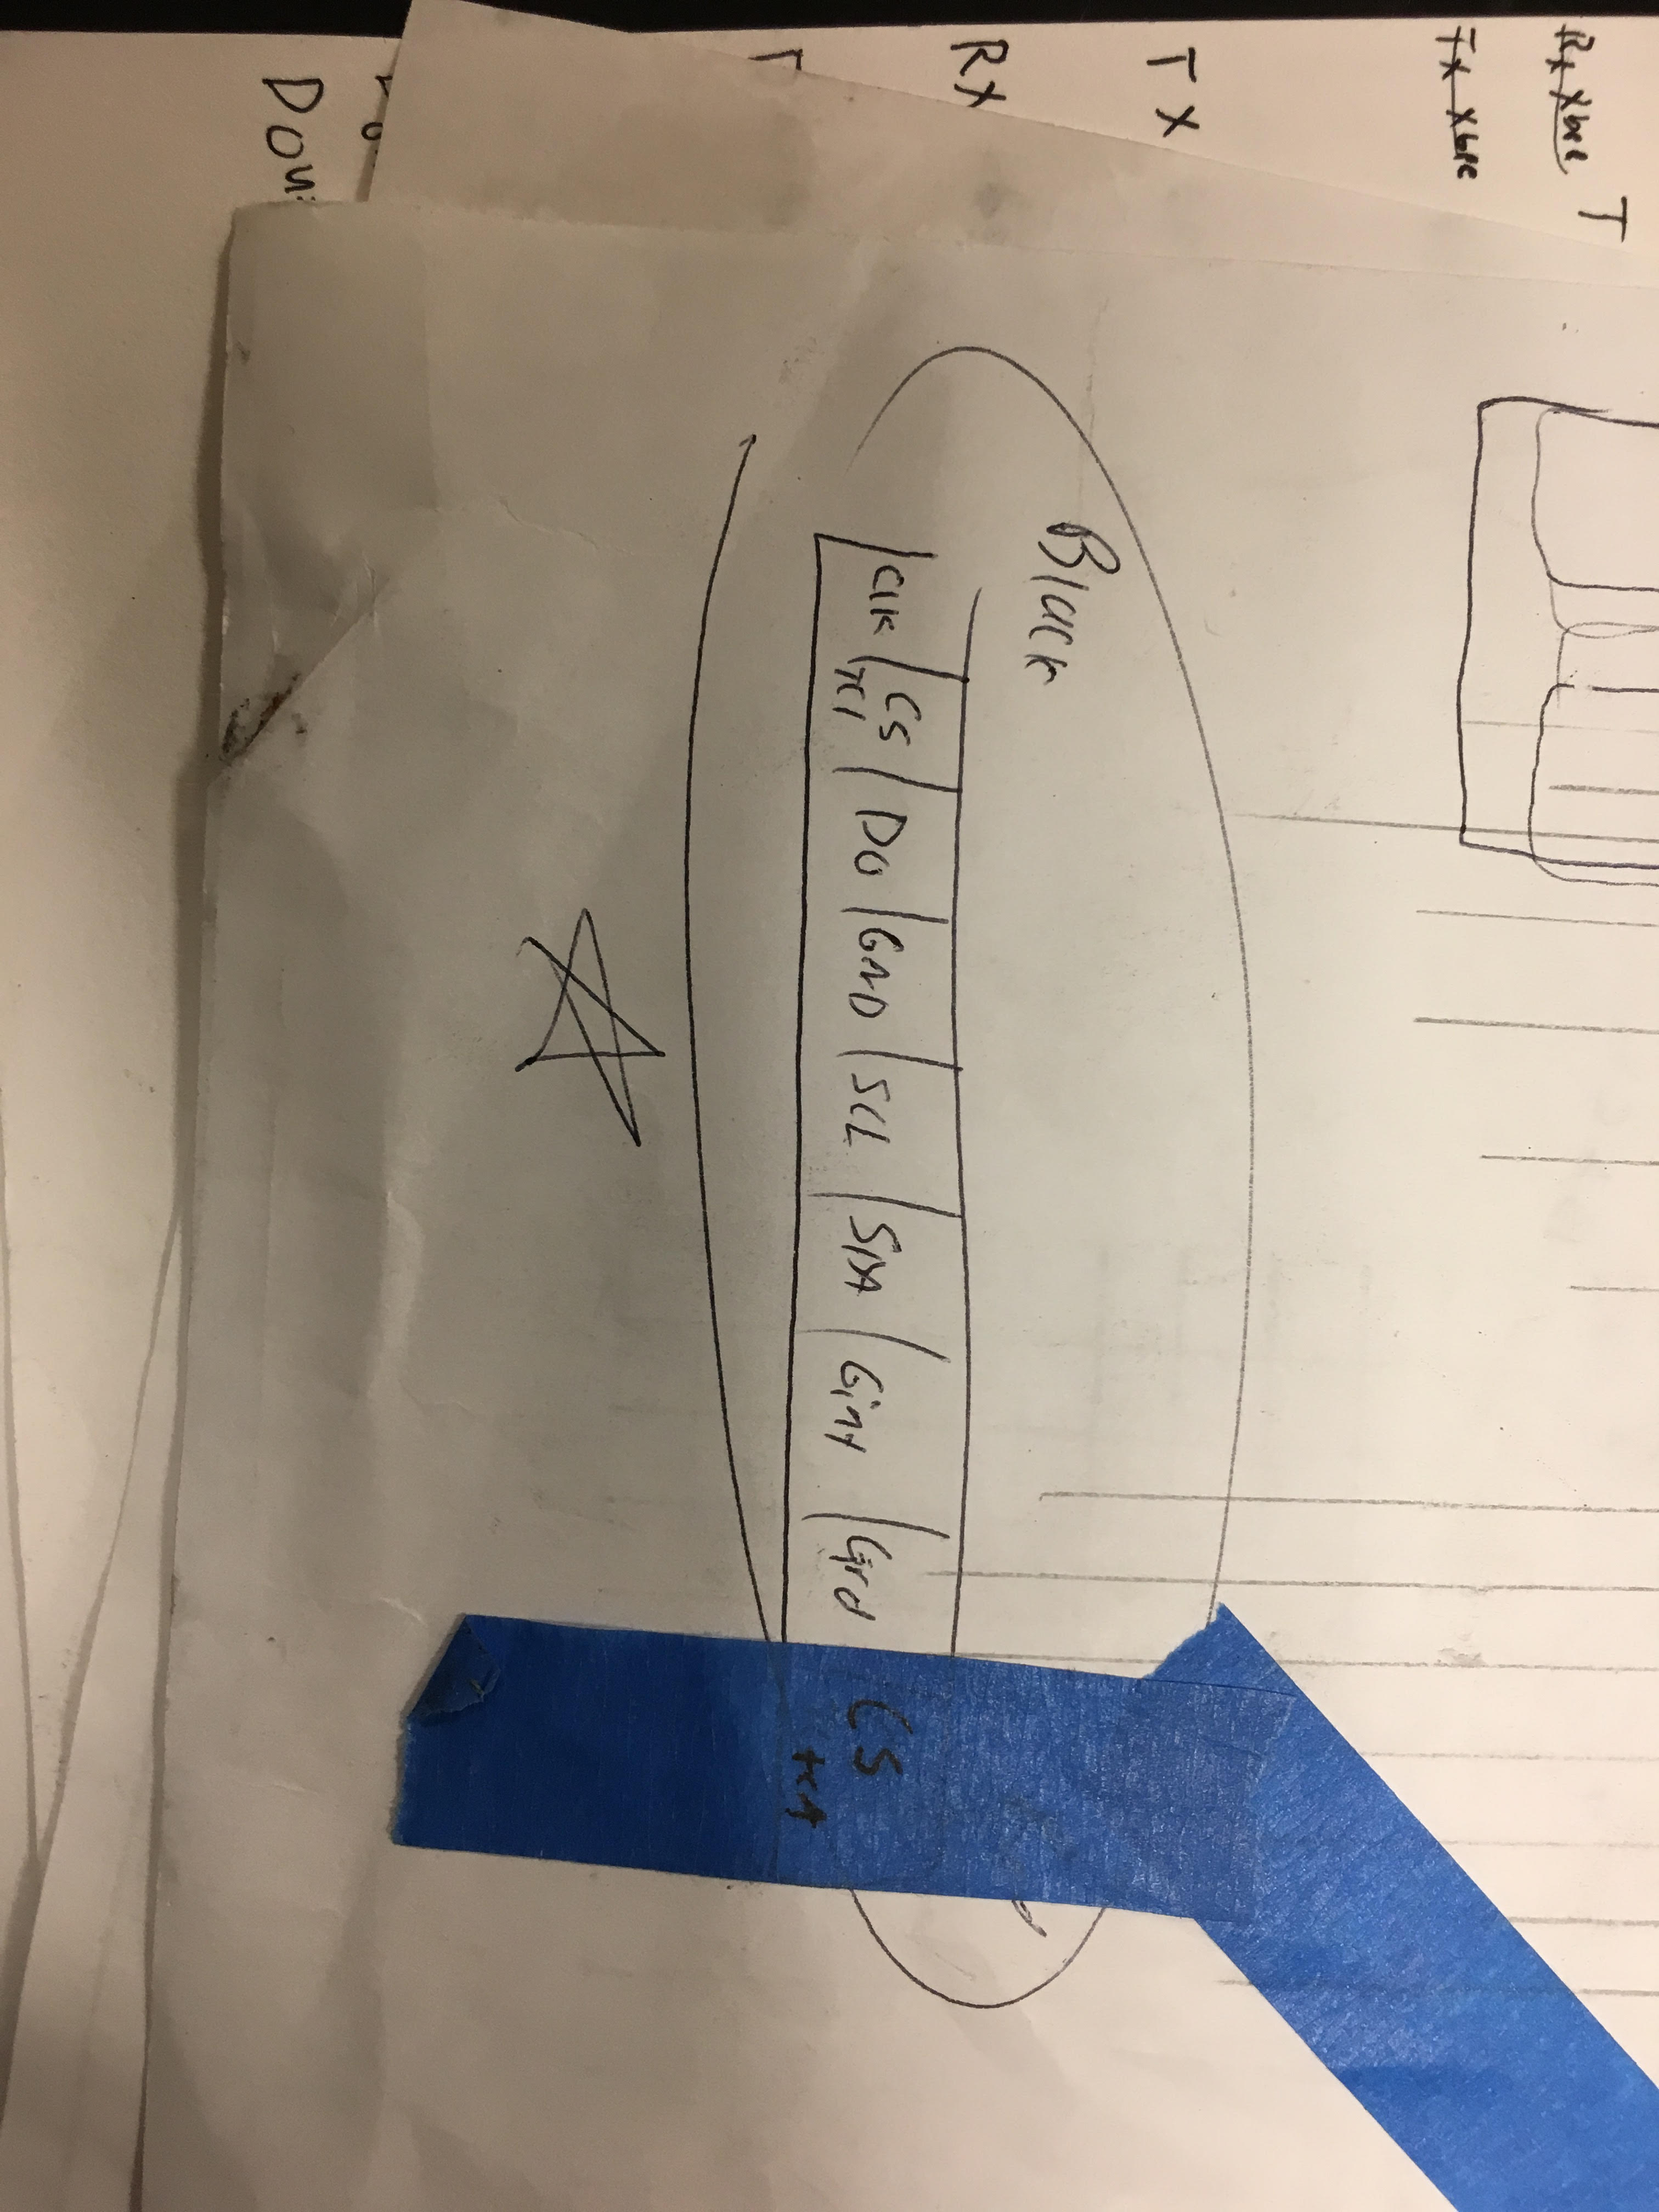 Rx Xbee T
Tx Xbee
TX
RX
Down
Black
Clk | CS | DO | GND | SCL | SDA | Giny | Grd
CS